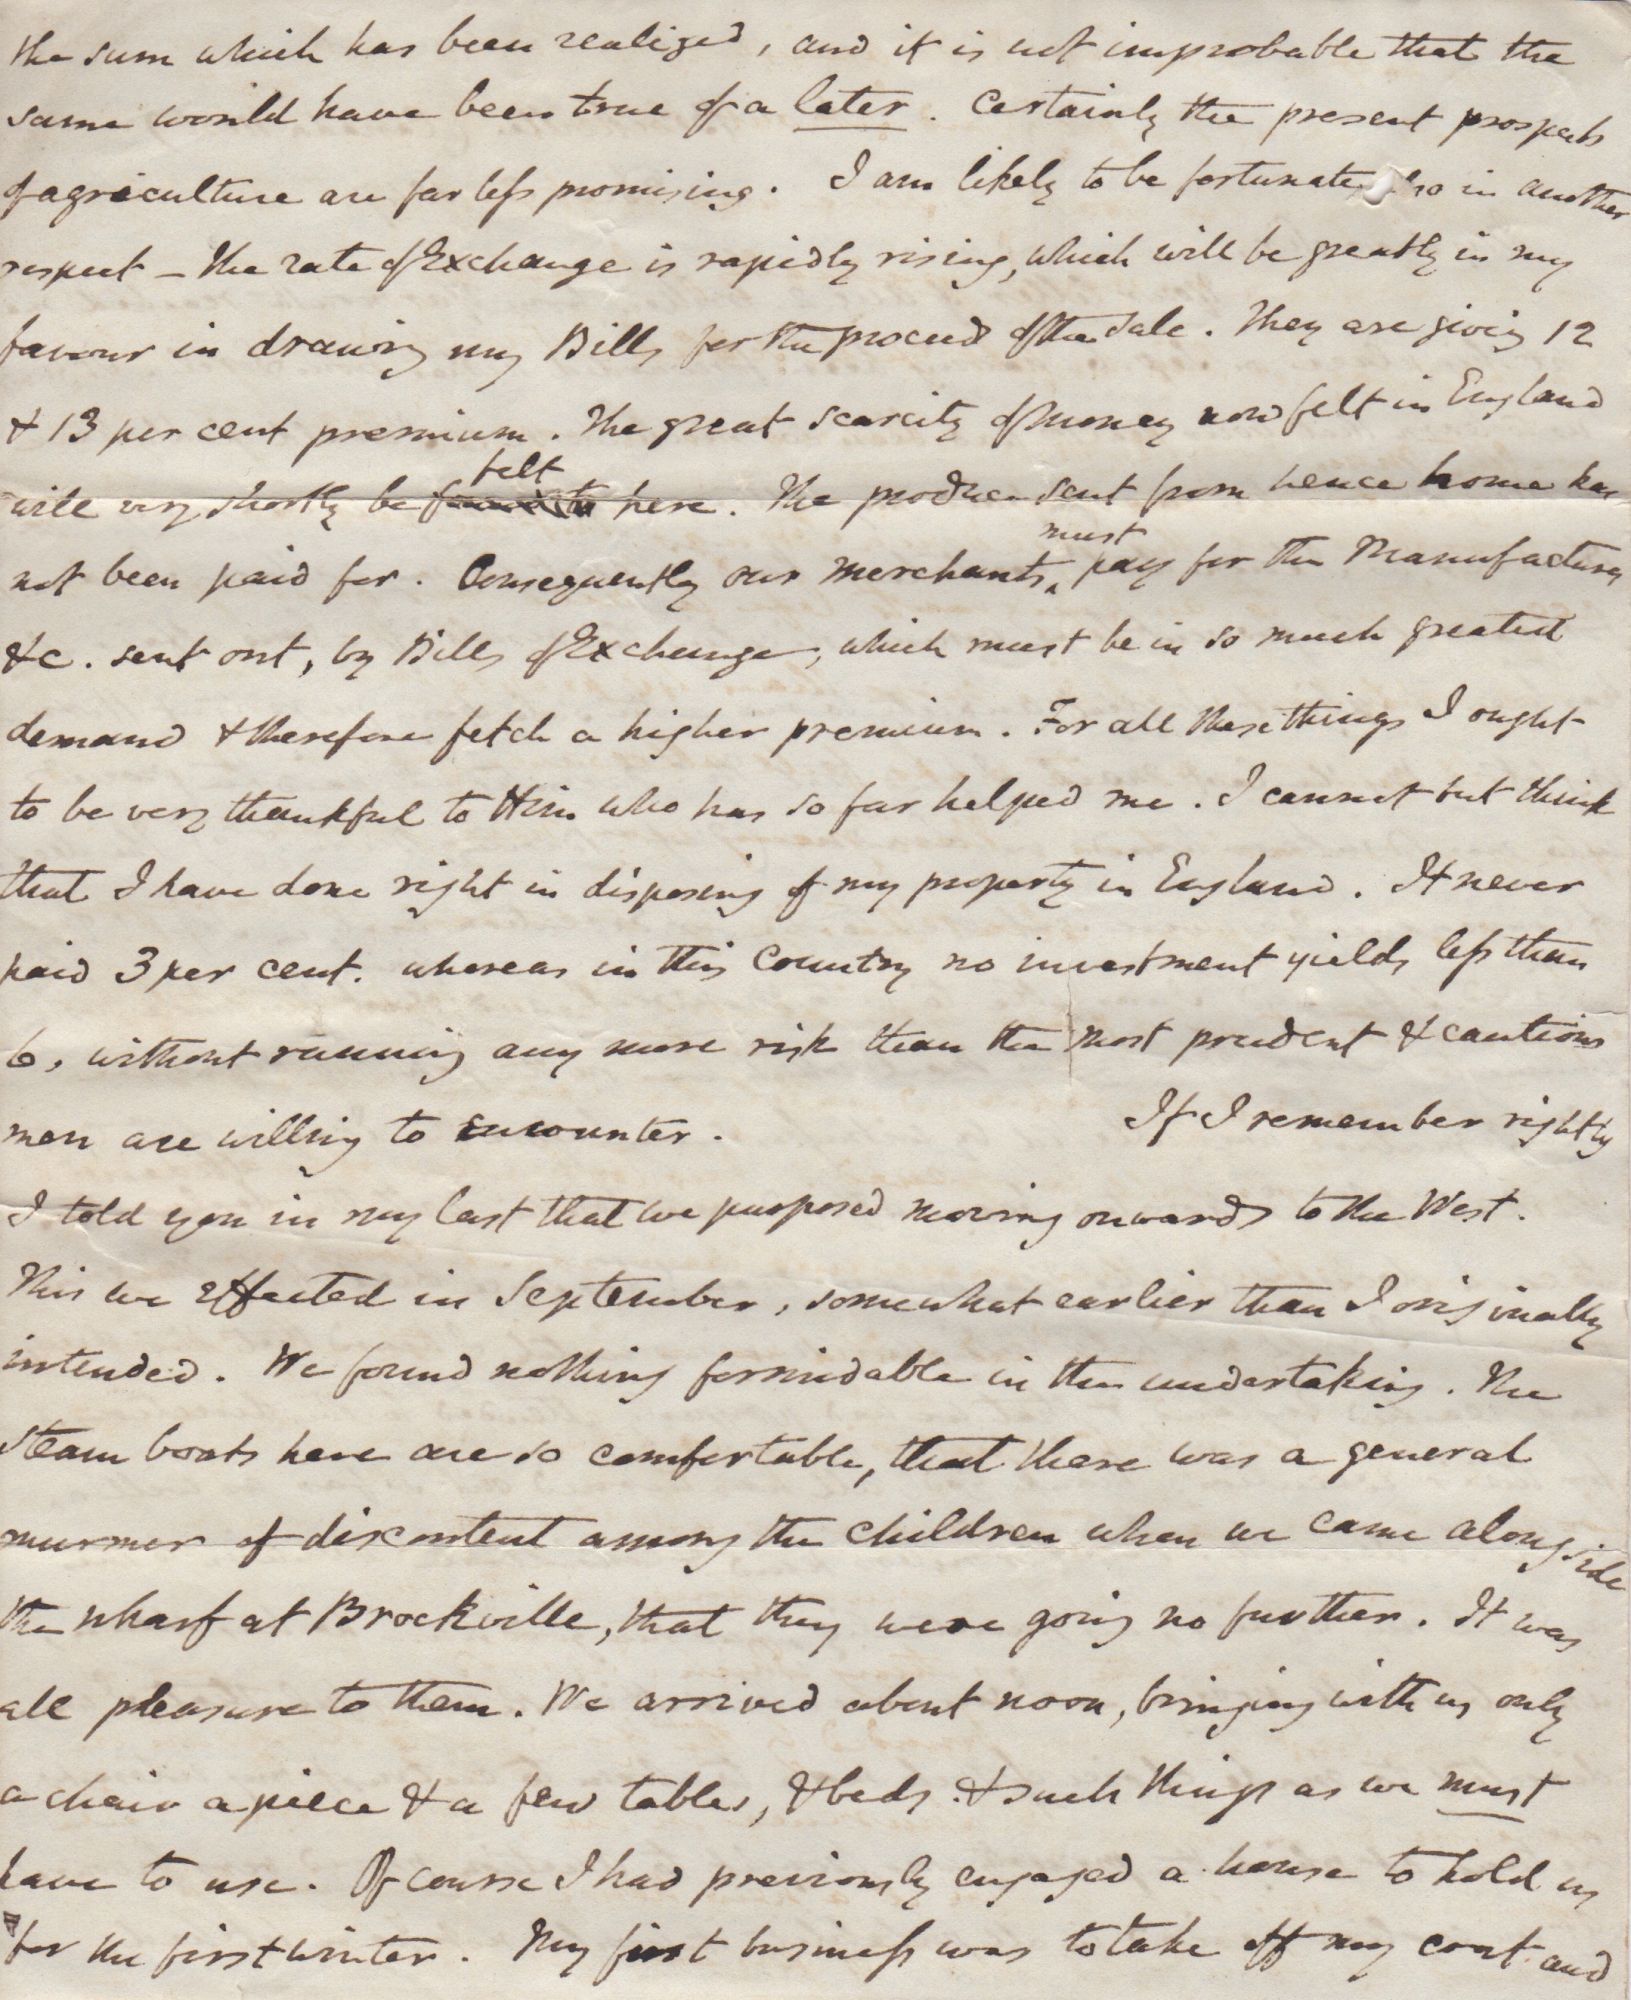 the sum which has been realized, and it is not improbable that the
same would have been true of a later. Certainly the present prospects
of agriculture are far less promising. I am likely to be fortunate also in another
respect – the rate of Exchange is rapidly rising, which will be greatly in my
favour in drawing my Bills for the proceed of the Sale. They are giving 12
& 13 per cent premium. The great scarcity of money now felt in England
will very shortly be felt here. The produce sent from hence home has
not been paid for. Consequently our merchants must pay for the Manufactures
&c. sent out, by Bills of Exchange, which must be in so much greater
demand & therefore fetch a higher premium. For all these things I ought
to be very thankful to Him who has so far helped me. I cannot but think
that I have done right in disposing of my property in England. It never
paid 3 per cent. whereas in this Country no investment yields less than
6, without running any more risk than the most prudent & cautious
men are willing to encounter. If I remember rightly
I told you in my last that we purposed moving onwards to the West.
This we effected in September, somewhat earlier than I originally
intended. We found nothing formidable in the undertaking. The
steam boats here are so comfortable, that there was a general
murmer of discontent among the children when we came alongside
the wharf at Brockville, that they were going no further. It was
all pleasure to them. We arrived about noon, bringing with us only
a chair a piece & a few tables, & beds & such things as we must
have to use. Of course I had previously engaged a house to hold us
for the first winter. My first business was to take off my coat and